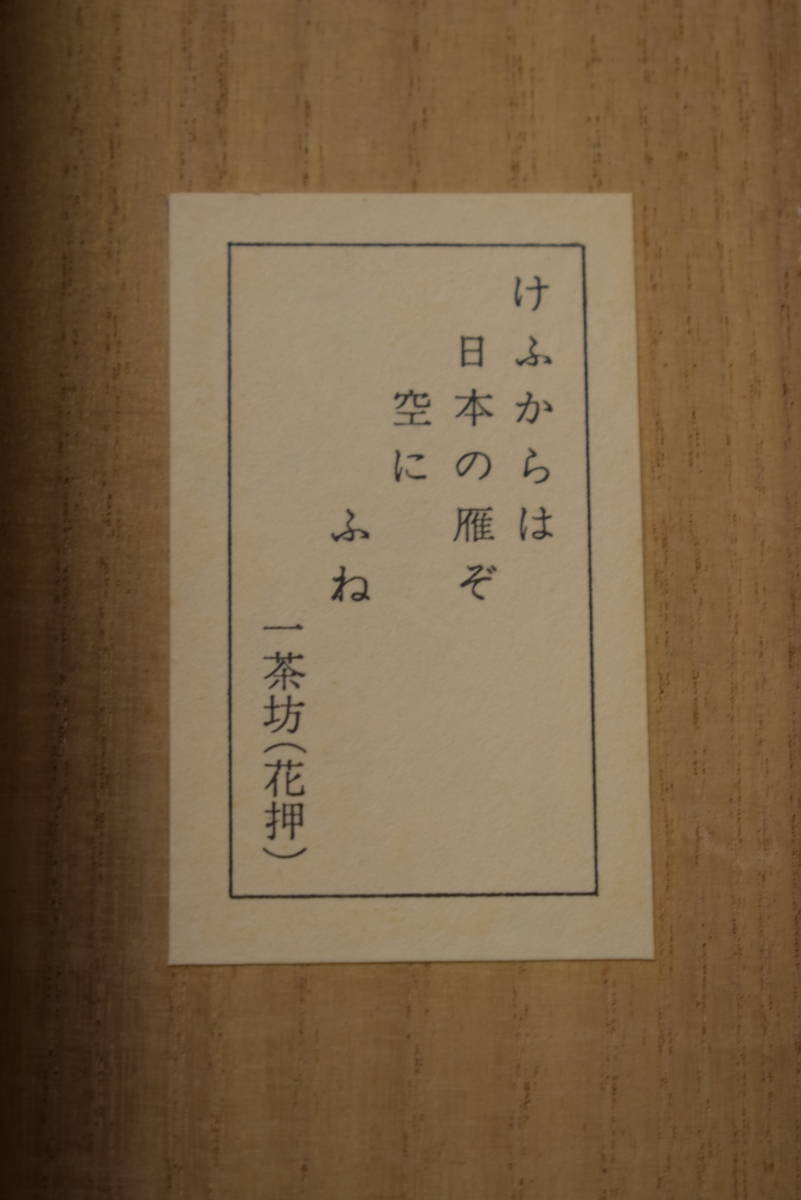 けふからは
日本の雁ぞ
空に
ふね
一茶坊（花押）